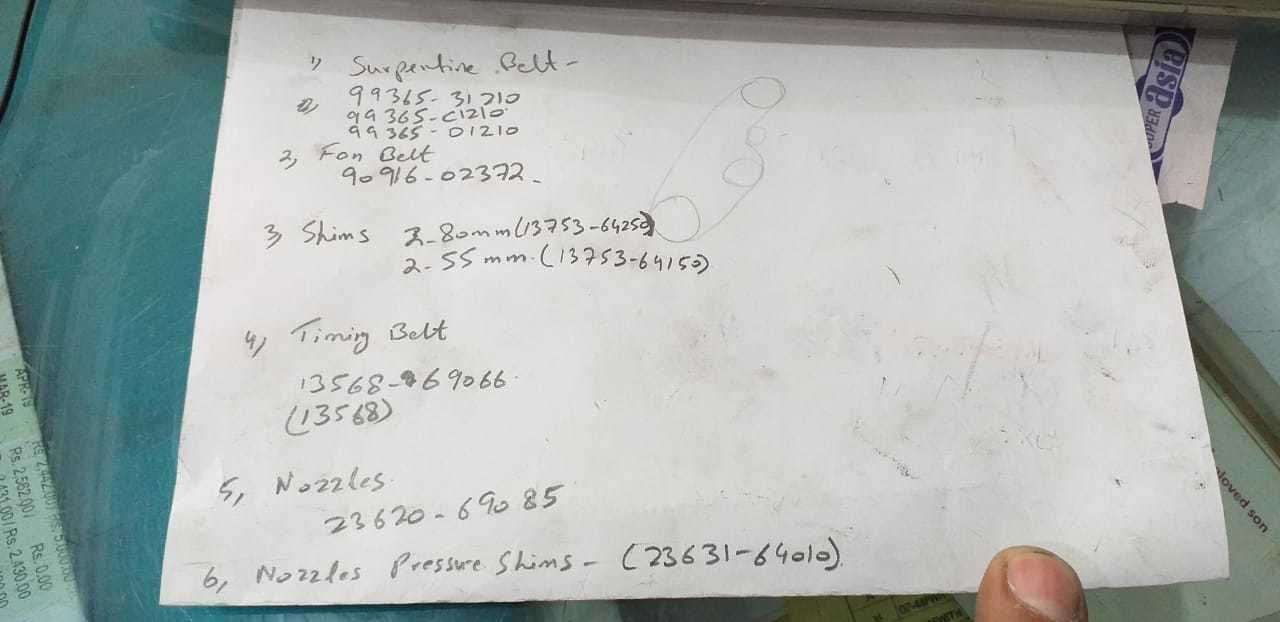 1) Surpentine Belt -
99365-31210
99365-C1210
99365-01210
2, Fan Belt
90916-02372-
3, Shims 2-80mm (13753-64250)
2-55 mm. (13753-64150)
4, Timing Belt
13568-69066
(13568)
5, Nozzles
23620-69085
6, Nozzles Pressure Shims - (23631-64010)
SUPER asia
APR-19
MAR-19
Rs. 2,562.00
Rs. 0.00
Rs. 2,430.00
eloved son